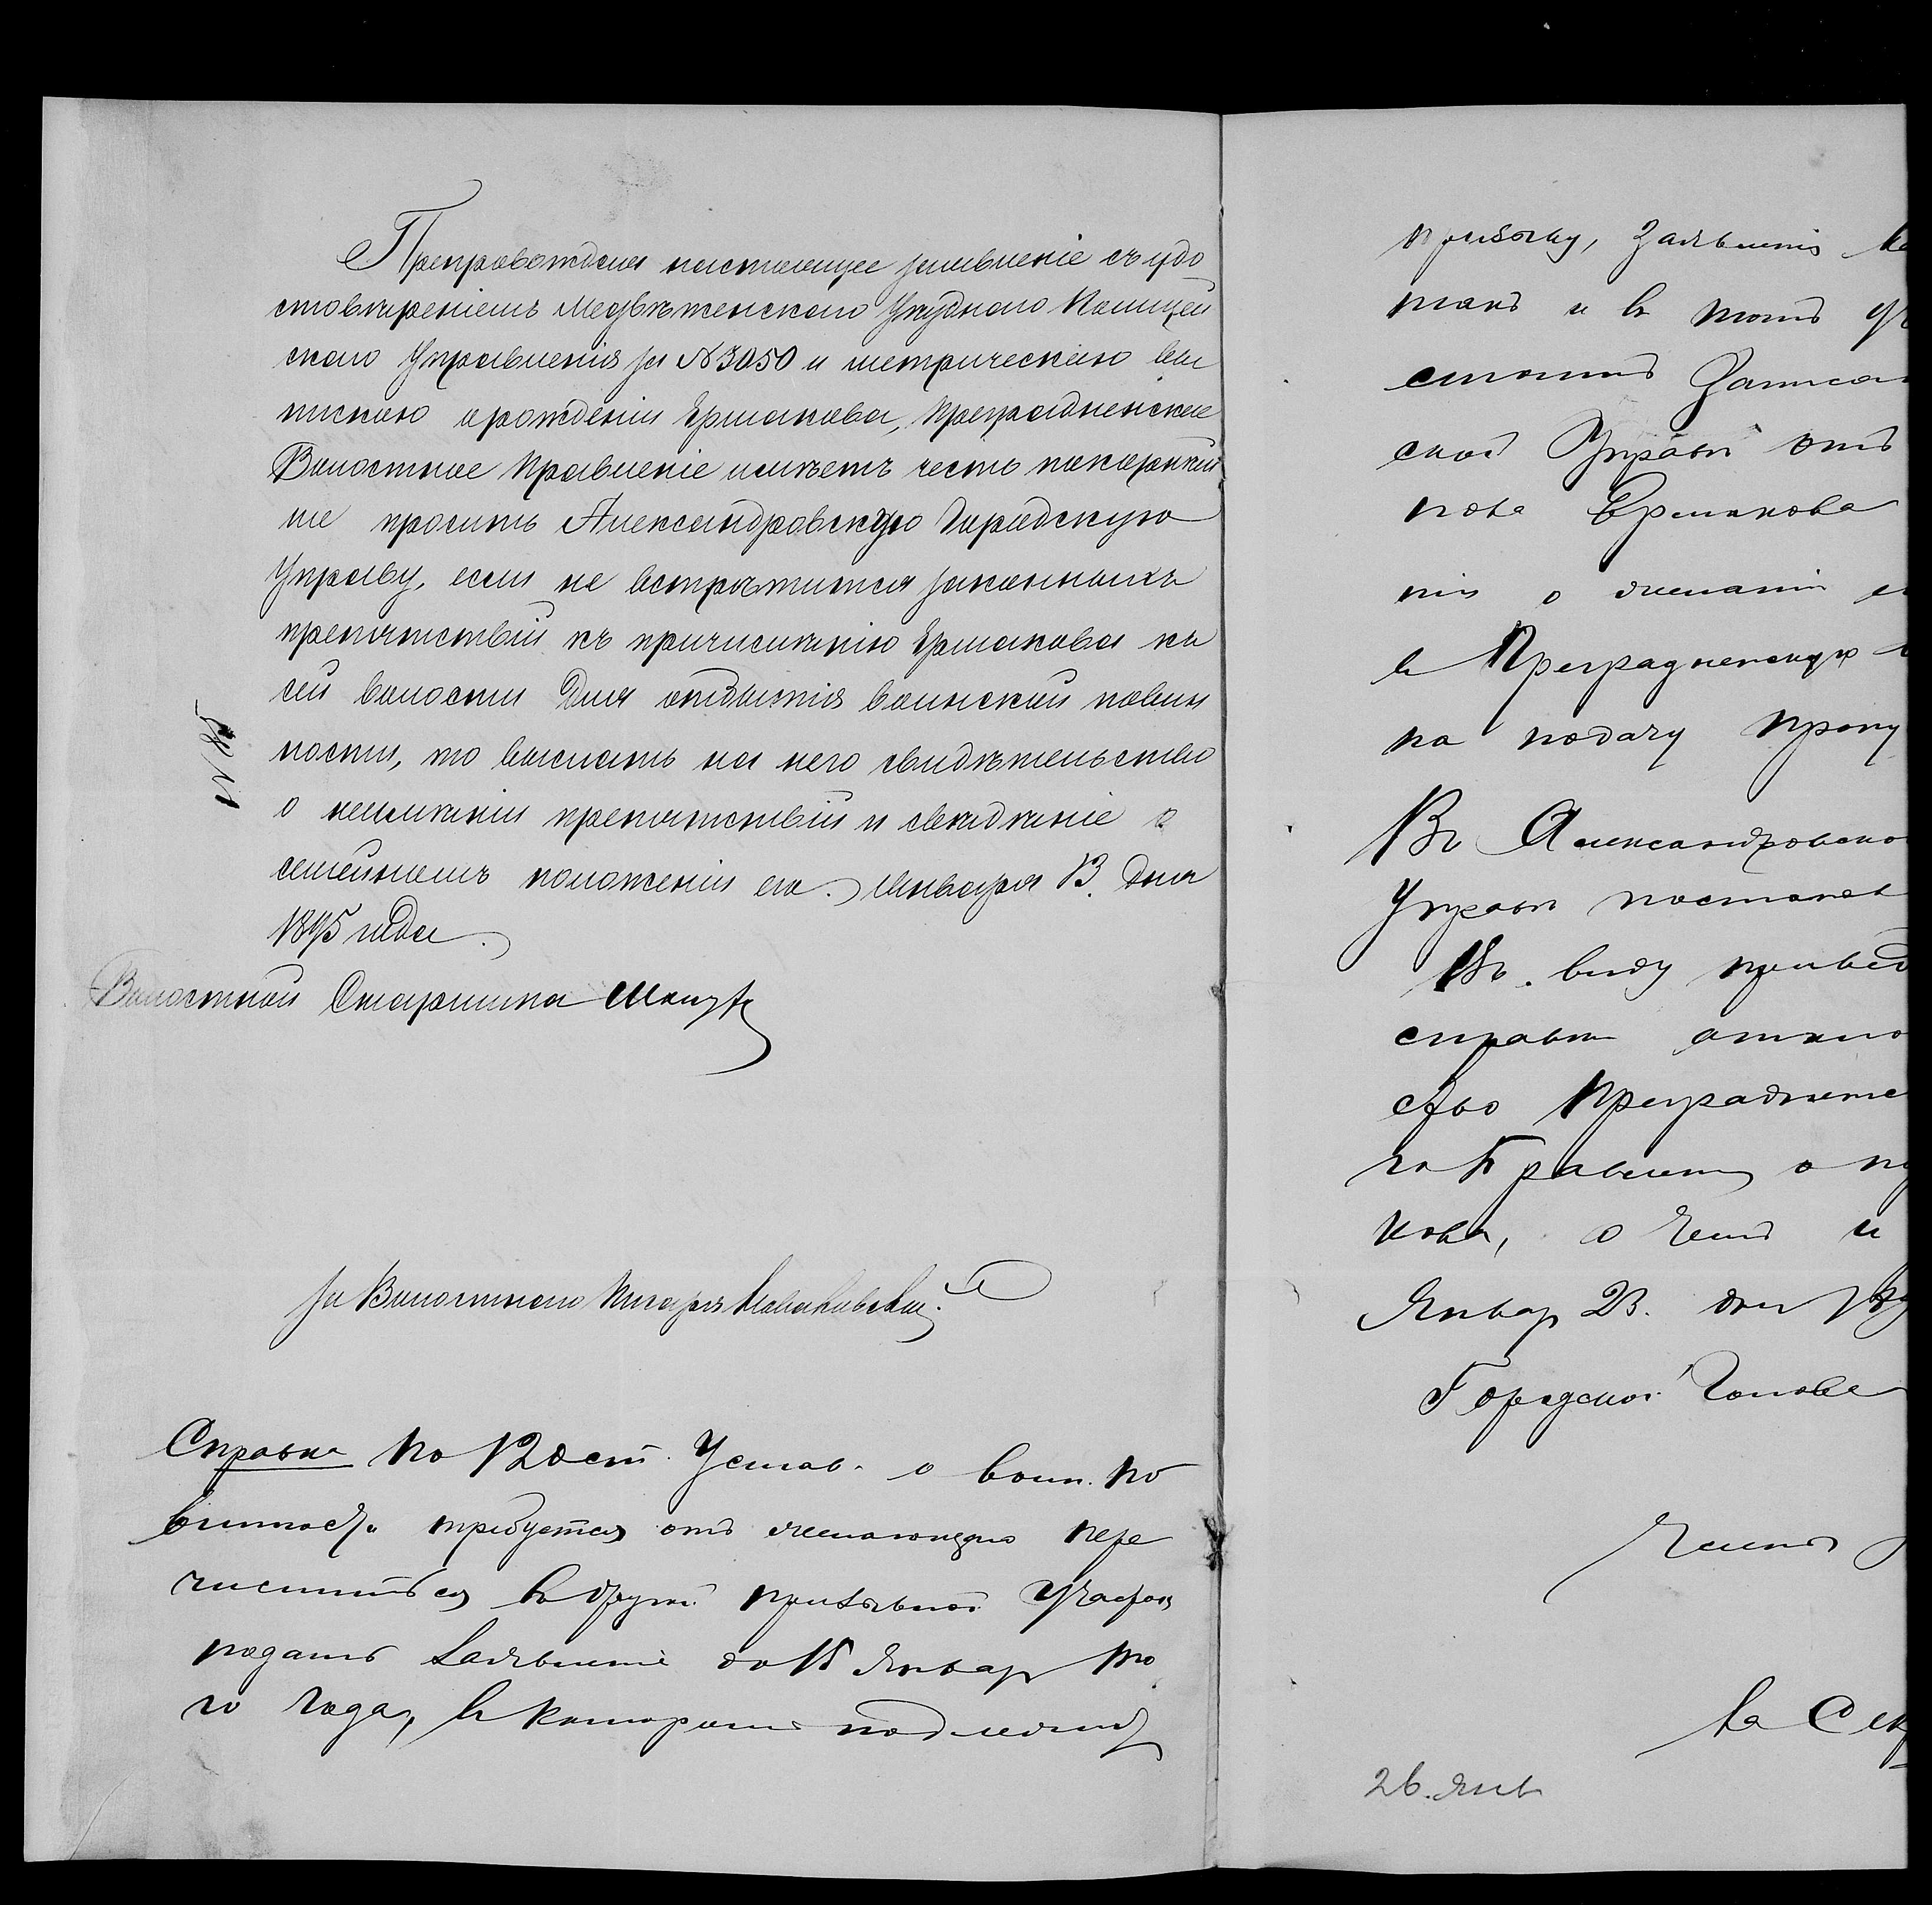 Препровождая настоящее заявленіе съ удо
стовѣреніемъ Медвѣженскаго Уѣзднаго Полицей
скаго Управленія за №3050 и метрическою вы
пискою о рожденіи Ермакова, Преградненское
Волостное Правленіе имѣетъ честь покорнѣй
ше просить Александровскую Городскую
Управу, если не встрѣтится законныхъ
препятствій къ причисленію Ермакова къ
сей волости для отбытія воинской повин
ности, то выслать на него свидѣтельство
о неимѣніи препятствій и свѣдѣніе о
семейномъ положеніи его. Января 13 дня
1895 года.
Волостной Старшина
за Волостного Писаря
Справка По 120 ст. Устав. о воин. по
винности требуется отъ желающаго пере
числиться въ другой призывной участокъ
подать заявленіе до 15 Января то
го года, въ которомъ подлежитъ
призыву, Заявленія
такъ и въ томъ
стоитъ Записа
ской Управы отъ
кова Ермакова
нія о желаніи
въ Преградненскую
на подачу пропу
Въ Александровско
Управы постанов
Въ виду привед
справки откло
ство Преградненс
го Правленія о пр
кова, о чемъ и
Январ 23. дня 189
Городской Голова
Членъ
За Сек
26. янв